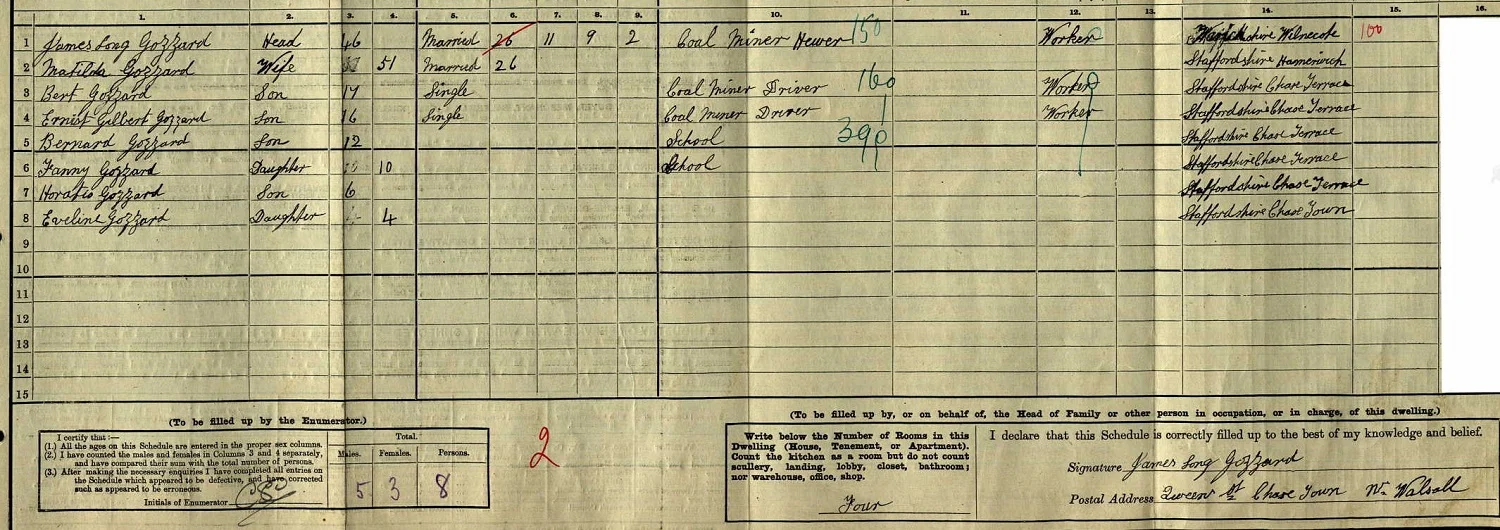 1. 2. 3. 4. 5. 6. 7. 8. 9. 10. 11. 12. 13. 14. 15. 16.
1 James Long Gozzard Head 46 Married 26 11 9 2 Coal Miner Hewer 150 Worker Warwickshire Wilnecote 100
2 Matilda Gozzard Wife 51 Married 26 Staffordshire Hamerwich
3 Bert Gozzard Son 17 Single Coal Miner Driver 160 Worker Staffordshire Chase Terrace
4 Ernist Gilbert Gozzard Son 16 Single Coal Miner Driver Worker Staffordshire Chase Terrace
5 Bernard Gozzard Son 12 School 390 Staffordshire Chase Terrace
6 Fanny Gozzard Daughter 10 School Staffordshire Chase Terrace
7 Horatio Gozzard Son 6 Staffordshire Chase Terrace
8 Eveline Gozzard Daughter 4 Staffordshire Chase Town
9
10
11
12
13
14
15
(To be filled up by the Enumerator.)
I certify that:—
(1.) All the ages on this Schedule are entered in the proper sex columns.
(2.) I have counted the males and females in Columns 3 and 4 separately,
and have compared their sum with the total number of persons.
(3.) After making the necessary enquiries I have completed all entries on
the Schedule which appeared to be defective, and have corrected
such as appeared to be erroneous.
Initials of Enumerator
Total.
Males. Females. Persons.
5 3 8
2
(To be filled up by, or on behalf of, the Head of Family or other person in occupation, or in charge, of this dwelling.)
Write below the Number of Rooms in this
Dwelling (House, Tenement, or Apartment).
Count the kitchen as a room but do not count
scullery, landing, lobby, closet, bathroom;
nor warehouse, office, shop.
Four
I declare that this Schedule is correctly filled up to the best of my knowledge and belief.
Signature James Long Gozzard
Postal Address Queen St Chase Town Nr Walsall